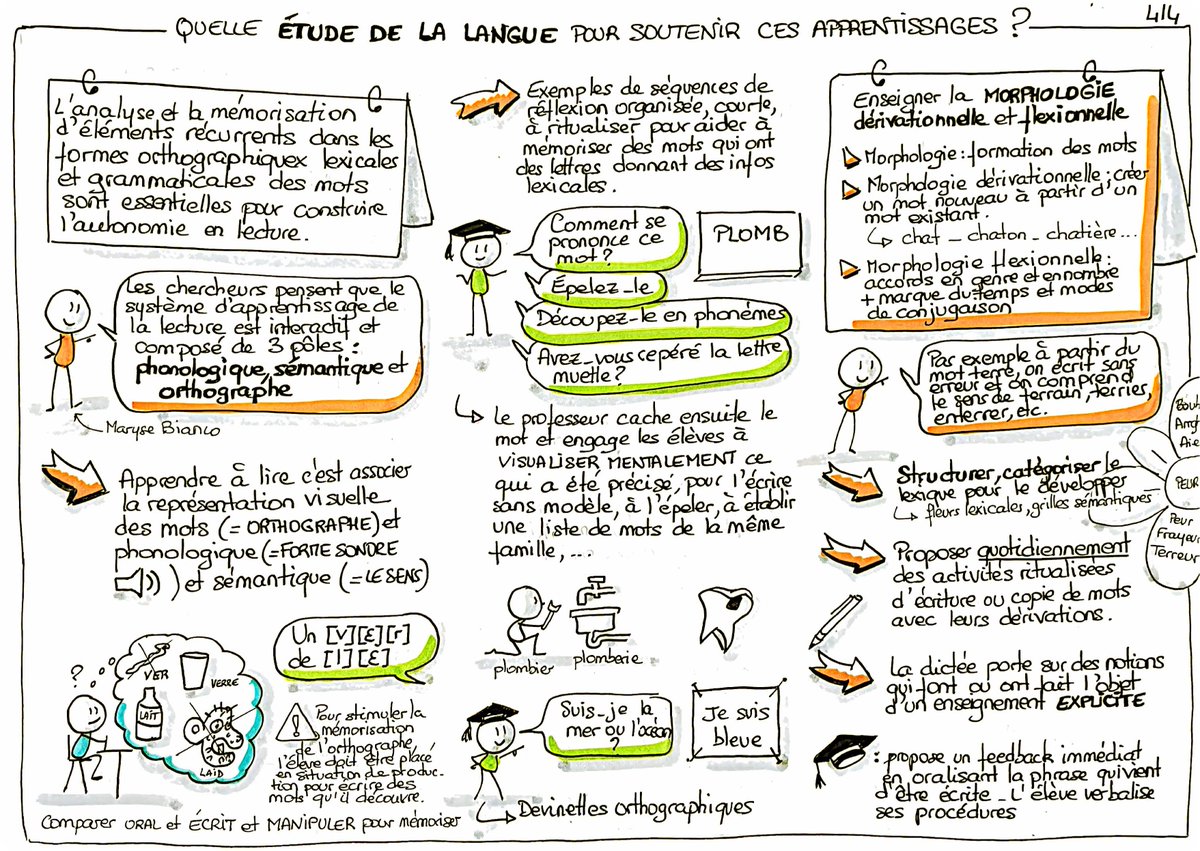 QUELLE ÉTUDE DE LA LANGUE POUR SOUTENIR CES APPRENTISSAGES ?
4/4
L'analyse et la mémorisation
d'éléments récurrents dans les
formes orthographiquex lexicales
et grammaticales des mots
sont essentielles pour construire
l'autonomie en lecture.
Les chercheurs pensent que le
système d'apprentissage de
la lecture est interactif et
composé de 3 pôles :
phonologique, sémantique et
orthographe
Maryse Bianco
Apprendre à lire c'est associer
la représentation visuelle
des mots (= ORTHOGRAPHE) et
phonologique (= FORME SONORE
) et sémantique (= LE SENS)
Un [v][ɛ][r]
de [l][ɛ]
?
VER
VERRE
LAIT
LAID
Pour stimuler la
mémorisation
de l'orthographe,
l'élève doit être placé
en situation de produc-
tion pour écrire des
mots qu'il découvre.
Comparer ORAL et ÉCRIT et MANIPULER pour mémoriser
Exemples de séquences de
réflexion organisée, courte,
à ritualiser pour aider à
mémoriser des mots qui ont
des lettres donnant des infos
lexicales.
Comment se
prononce ce
mot ?
PLOMB
Épelez-le
Découpez-le en phonèmes
Avez-vous cepéré la lettre
muette ?
Le professeur cache ensuite le
mot et engage les élèves à
VISUALISER MENTALEMENT ce
qui a été précisé, pour l'écrire
sans modèle, à l'épeler, à établir
une liste de mots de la même
famille, ...
plombier
plomberie
Suis-je la
mer ou l'océan
?
Je suis
bleue
Devinettes orthographiques
Enseigner la MORPHOLOGIE
dérivationnelle et flexionnelle
Morphologie : formation des mots
Morphologie dérivationnelle : créer
un mot nouveau à partir d'un
mot existant.
chat - chaton - chatière...
Morphologie flexionnelle :
accords en genre et en nombre
+ marque du temps et modes
de conjugaison
Pas exemple à partir du
mot terre, on écrit sans
erreur et on comprend
le sens de terrain, terries,
enterrer, etc.
Structurer, catégoriser le
lexique pour le développer
fleurs lexicales, grilles sémantiques
Bou
Ang
Aie
PEUR
Peur
Frayeu
Terreur
Proposer quotidiennement
des activités ritualisées
d'écriture ou copie de mots
avec leurs dérivations.
La dictée porte sur des notions
qui font ou ont fait l'objet
d'un enseignement EXPLICITE
: propose un feedback immédiat
en oralisant la phrase qui vient
d'être écrite - L'élève verbalise
ses procédures